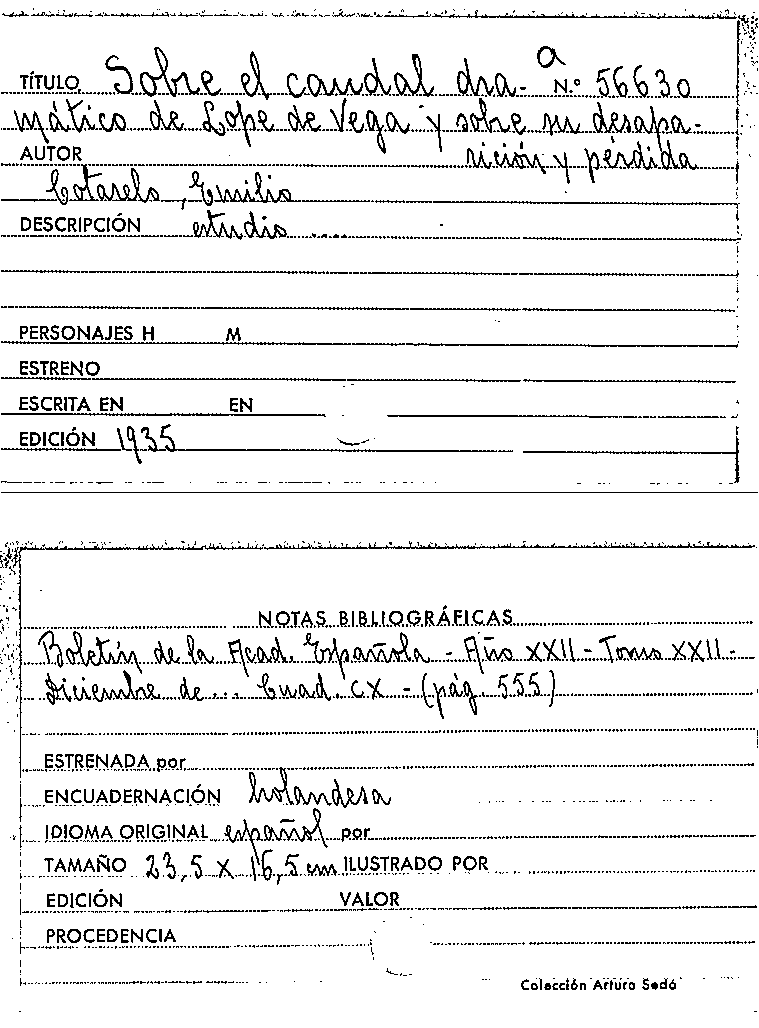 a
TÍTULO Sobre el caudal dra- N.º 56630
mático de Lope de Vega y sobre su desapa-
AUTOR rición y pérdida
Cotarelo, Emilio
DESCRIPCIÓN estudio ....
PERSONAJES H M
ESTRENO
ESCRITA EN EN
EDICIÓN 1935
NOTAS BIBLIOGRÁFICAS
Boletín de la Acad. Española - Año XXII - Tomo XXII -
Diciembre de ... Cuad. CX - (pág. 555)
ESTRENADA por
ENCUADERNACIÓN holandesa
IDIOMA ORIGINAL español por
TAMAÑO 23,5 x 16,5 cm ILUSTRADO POR
EDICIÓN VALOR
PROCEDENCIA
Colección Arturo Sedó